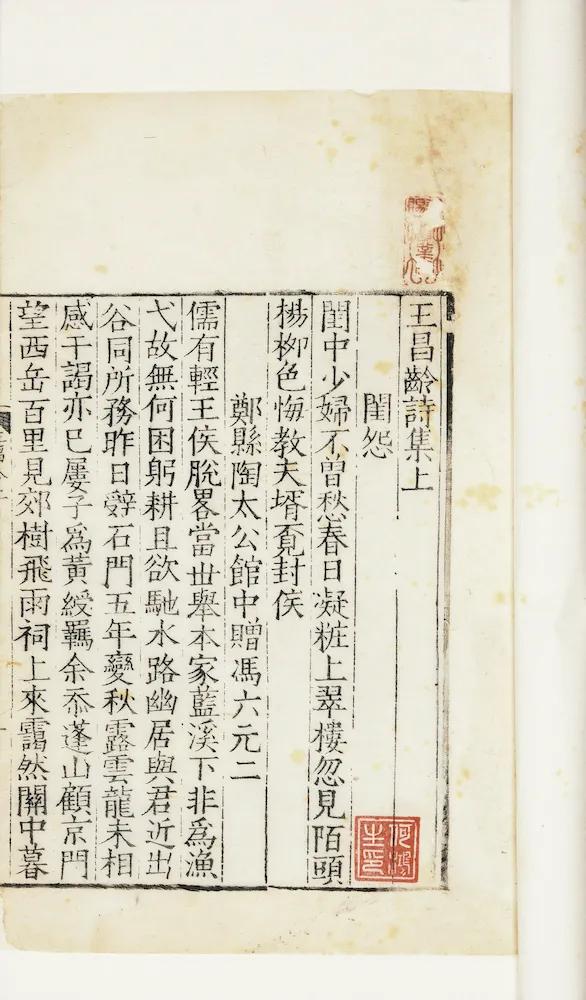 王昌齡詩集上
閨怨
閨中少婦不曽愁春日凝粧上翠樓忽見陌頭
楊栁色悔教夫壻覔封侯
鄭縣陶太公館中贈馮六元二
儒有輕王侯脫畧當世舉本家藍溪下非爲漁
弋故無何困躬耕且欲馳水路幽居與君近出
谷同所務昨日辤石門五年變秋露雲龍未相
感干謁亦已屢子爲黃綬羈余忝蓬山顧京門
望西岳百里見郊樹飛雨祠上來靄然關中暮